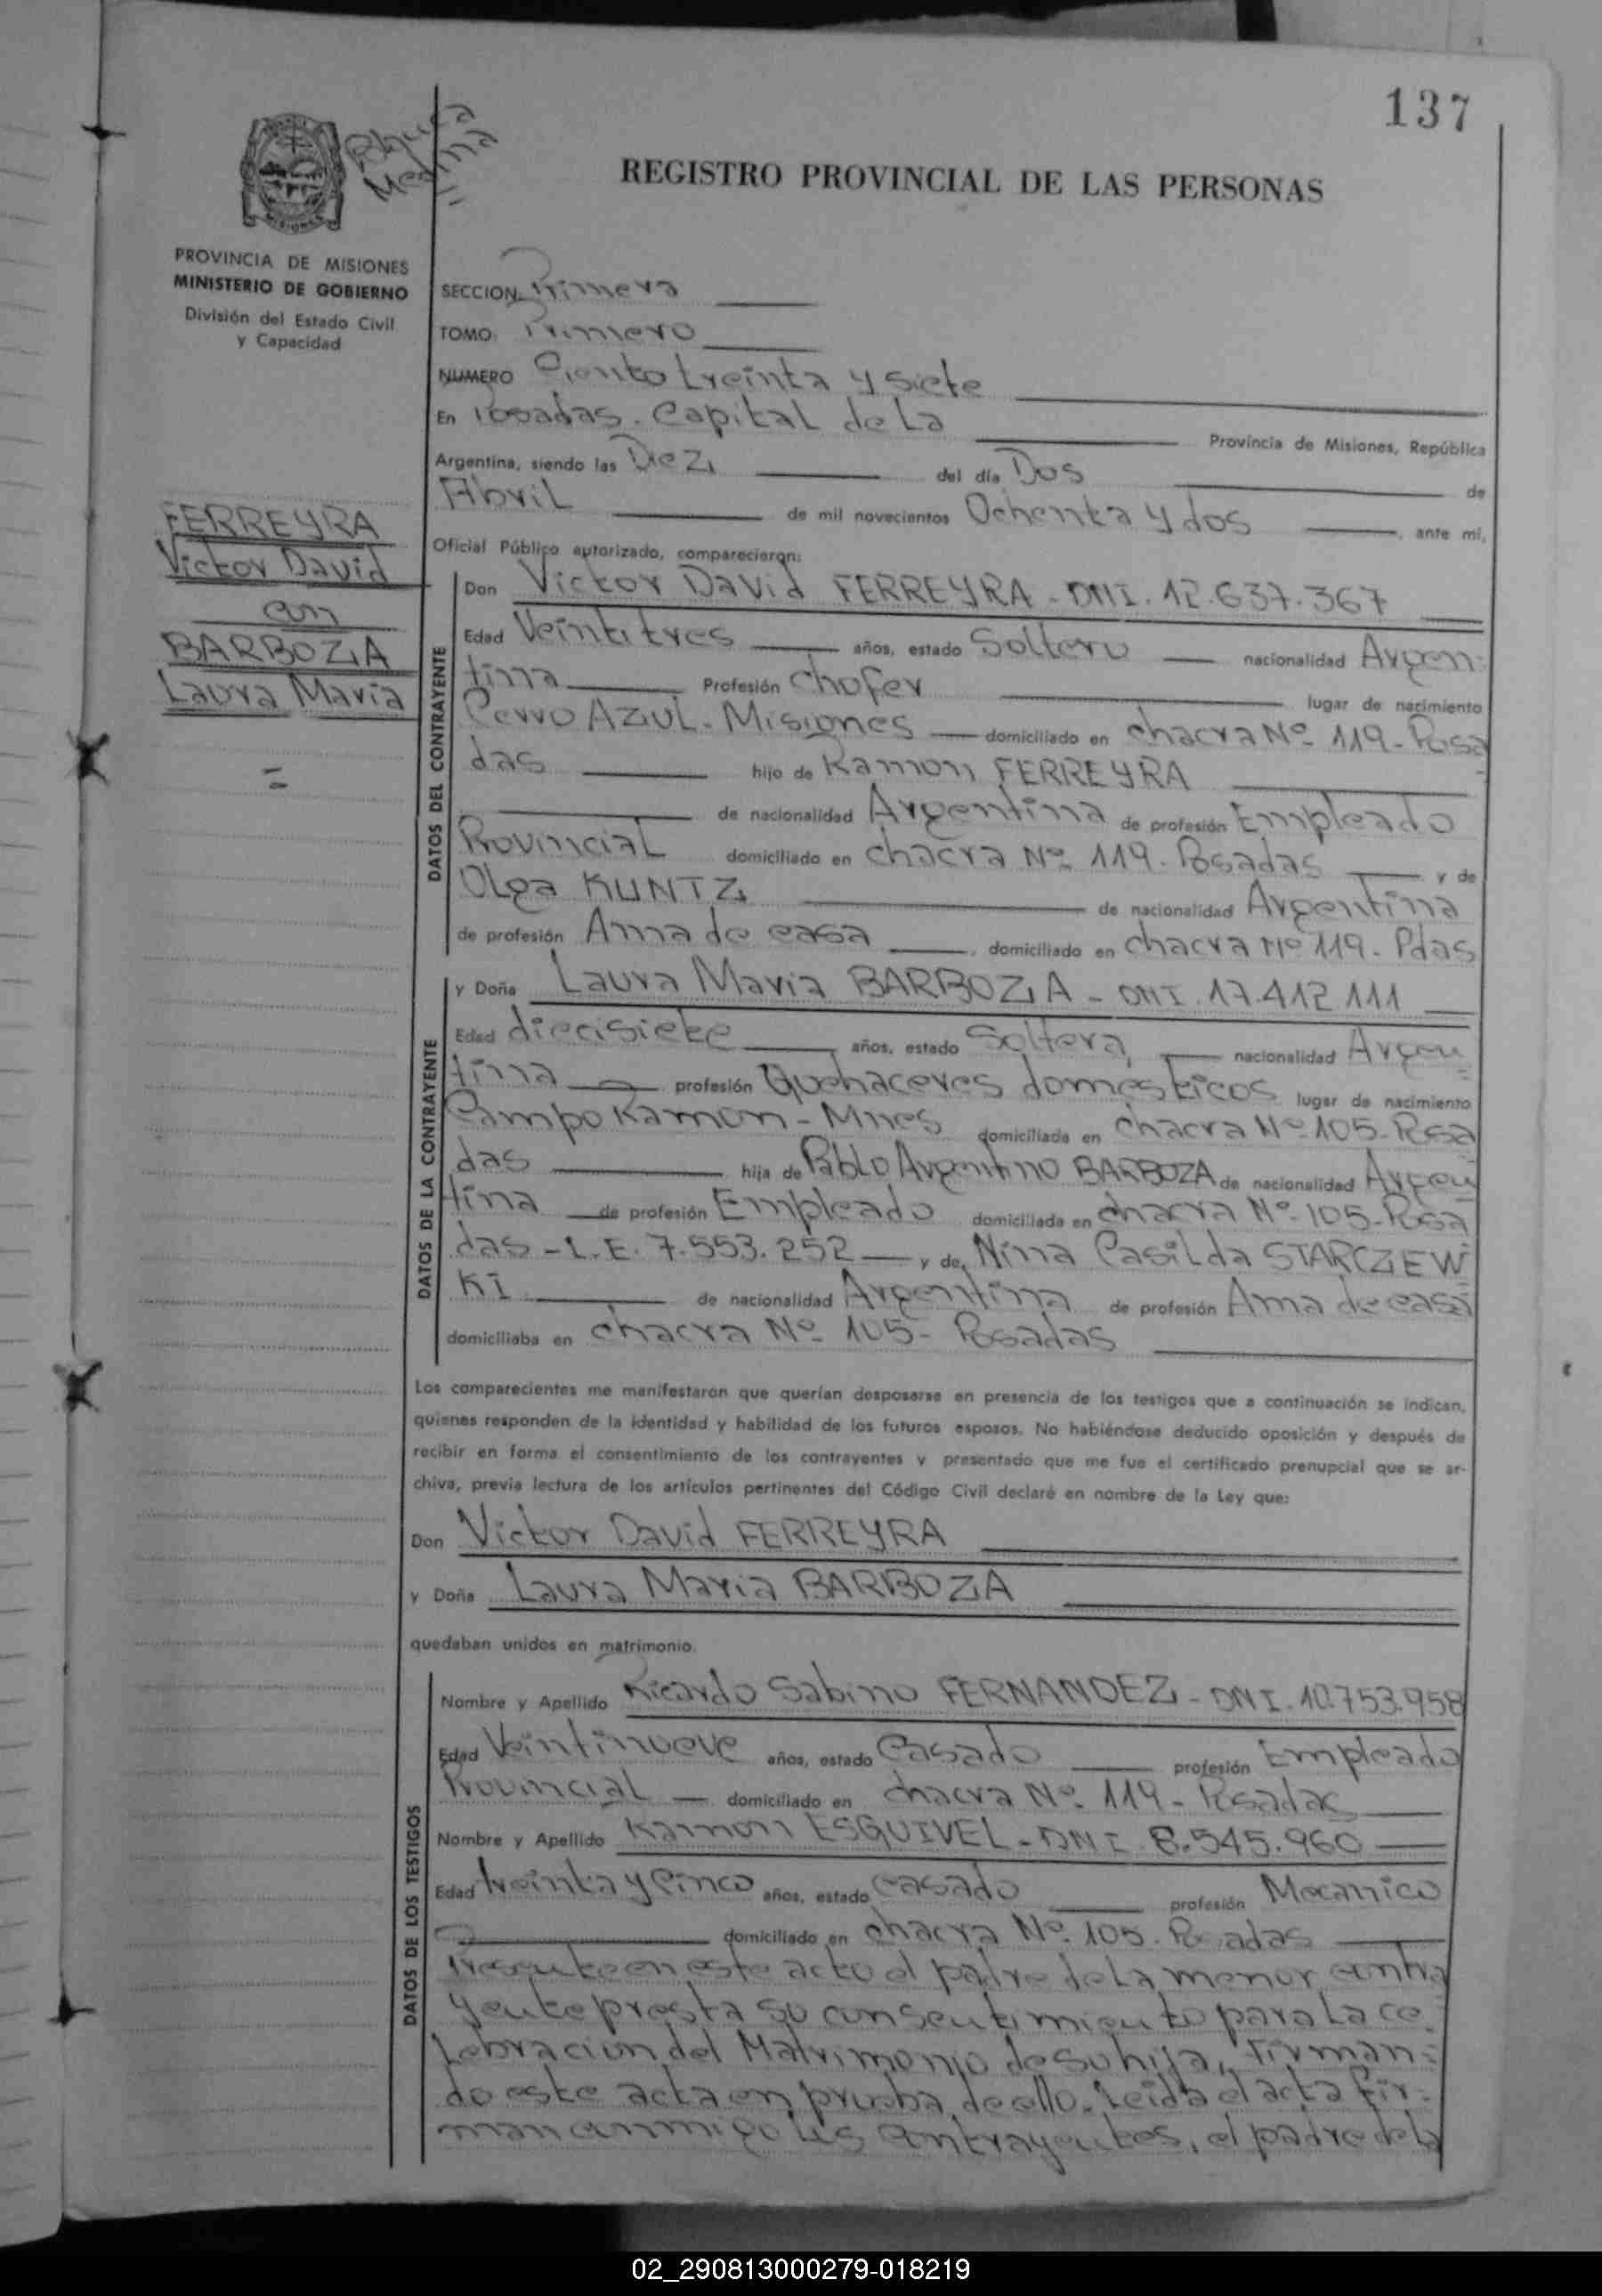 137
REGISTRO PROVINCIAL DE LAS PERSONAS
MISIONES
PROVINCIA DE MISIONES
MINISTERIO DE GOBIERNO
División del Estado Civil
y Capacidad
SECCION Primera
TOMO: Primero
NUMERO Ciento treinta y siete
En Posadas. Capital de La Provincia de Misiones, República
Argentina, siendo las Diez del día Dos de
Abril de mil novecientos Ochenta y dos, ante mí,
Oficial Público autorizado, comparecieron:
FERREYRA
Victor David
con
BARBOZA
Laura Maria
=
DATOS DEL CONTRAYENTE
Don Victor David FERREYRA - DNI. 12.637.367
Edad Veintitres años, estado Soltero nacionalidad Argen=
tina Profesión Chofer lugar de nacimiento
Cerro AZUL - Misiones domiciliado en chacra Nº 119 - Posa
das hijo de Ramon FERREYRA
de nacionalidad Argentina de profesión Empleado
Provincial domiciliado en chacra Nº 119. Posadas y de
Olga KUNTZ de nacionalidad Argentina
de profesión Ama de casa, domiciliado en chacra Nº 119 - Pdas
DATOS DE LA CONTRAYENTE
y Doña Laura Maria BARBOZA - DNI. 17.412.111
Edad diecisiete años, estado Soltera, nacionalidad Argen
tina profesión Quehaceres domésticos lugar de nacimiento
Campo Ramon - Mnes domiciliada en chacra Nº 105 - Posa
das hija de Pablo Argentino BARBOZA de nacionalidad Argen
tina de profesión Empleado domiciliada en chacra Nº 105 - Posa
das - L.E. 7.553.252 y de Nina Casilda STARCZEW
KI de nacionalidad Argentina de profesión Ama de casa
domiciliaba en chacra Nº 105 - Posadas
Los comparecientes me manifestaron que querían desposarse en presencia de los testigos que a continuación se indican,
quienes responden de la identidad y habilidad de los futuros esposos. No habiéndose deducido oposición y después de
recibir en forma el consentimiento de los contrayentes y presentado que me fue el certificado prenupcial que se ar-
chiva, previa lectura de los artículos pertinentes del Código Civil declaré en nombre de la Ley que:
Don Victor David FERREYRA
y Doña Laura Maria BARBOZA
quedaban unidos en matrimonio.
DATOS DE LOS TESTIGOS
Nombre y Apellido Ricardo Sabino FERNANDEZ - DNI. 10.753.958
Edad Veintinueve años, estado Casado profesión Empleado
Provincial domiciliado en chacra Nº 119 - Posadas
Nombre y Apellido Ramon ESQUIVEL - DNI 8.545.960
Edad treinta y Cinco años, estado Casado profesión Mecanico
domiciliado en chacra Nº 105. Posadas
Presente en este acto el padre de la menor contra
yente presta su consentimiento para la ce
lebracion del Matrimonio de su hija, firman=
do este acta en prueba de ello. Leida el acta fir=
man conmigo los contrayentes, el padre de la
02_290813000279-018219